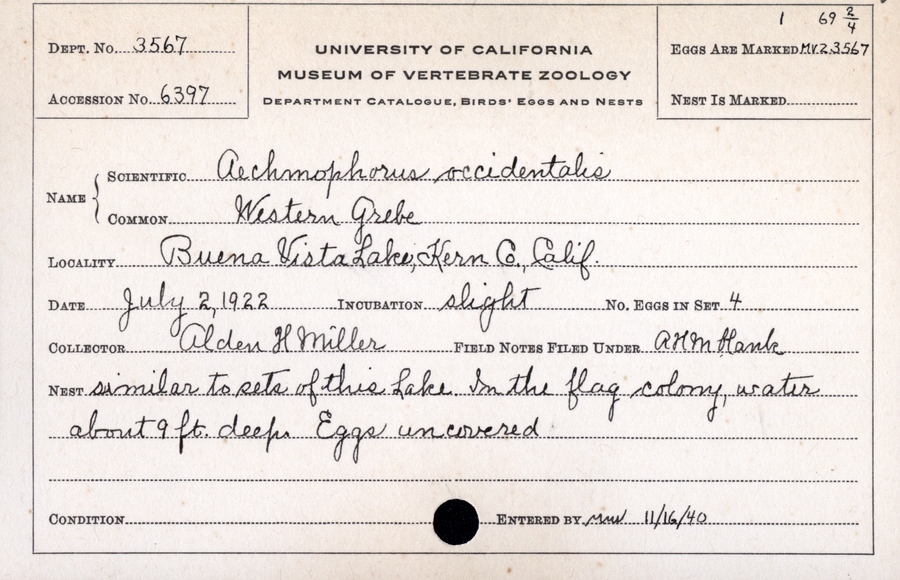 1 69 2/4
Dept. No. 3567
UNIVERSITY OF CALIFORNIA
MUSEUM OF VERTEBRATE ZOOLOGY
Eggs Are Marked MVZ3567
Accession No. 6397
Department Catalogue, Birds' Eggs and Nests
Nest Is Marked
Name
Scientific Aechmophorus occidentalis
Common Western Grebe
Locality Buena Vista Lake, Kern Co., Calif.
Date July 2, 1922 Incubation slight No. Eggs in Set 4
Collector Alden H Miller Field Notes Filed Under AHM
Nest similar to sets of this Lake. In the flag colony, water
about 9 ft. deep. Eggs uncovered
Condition Entered by 11/16/40